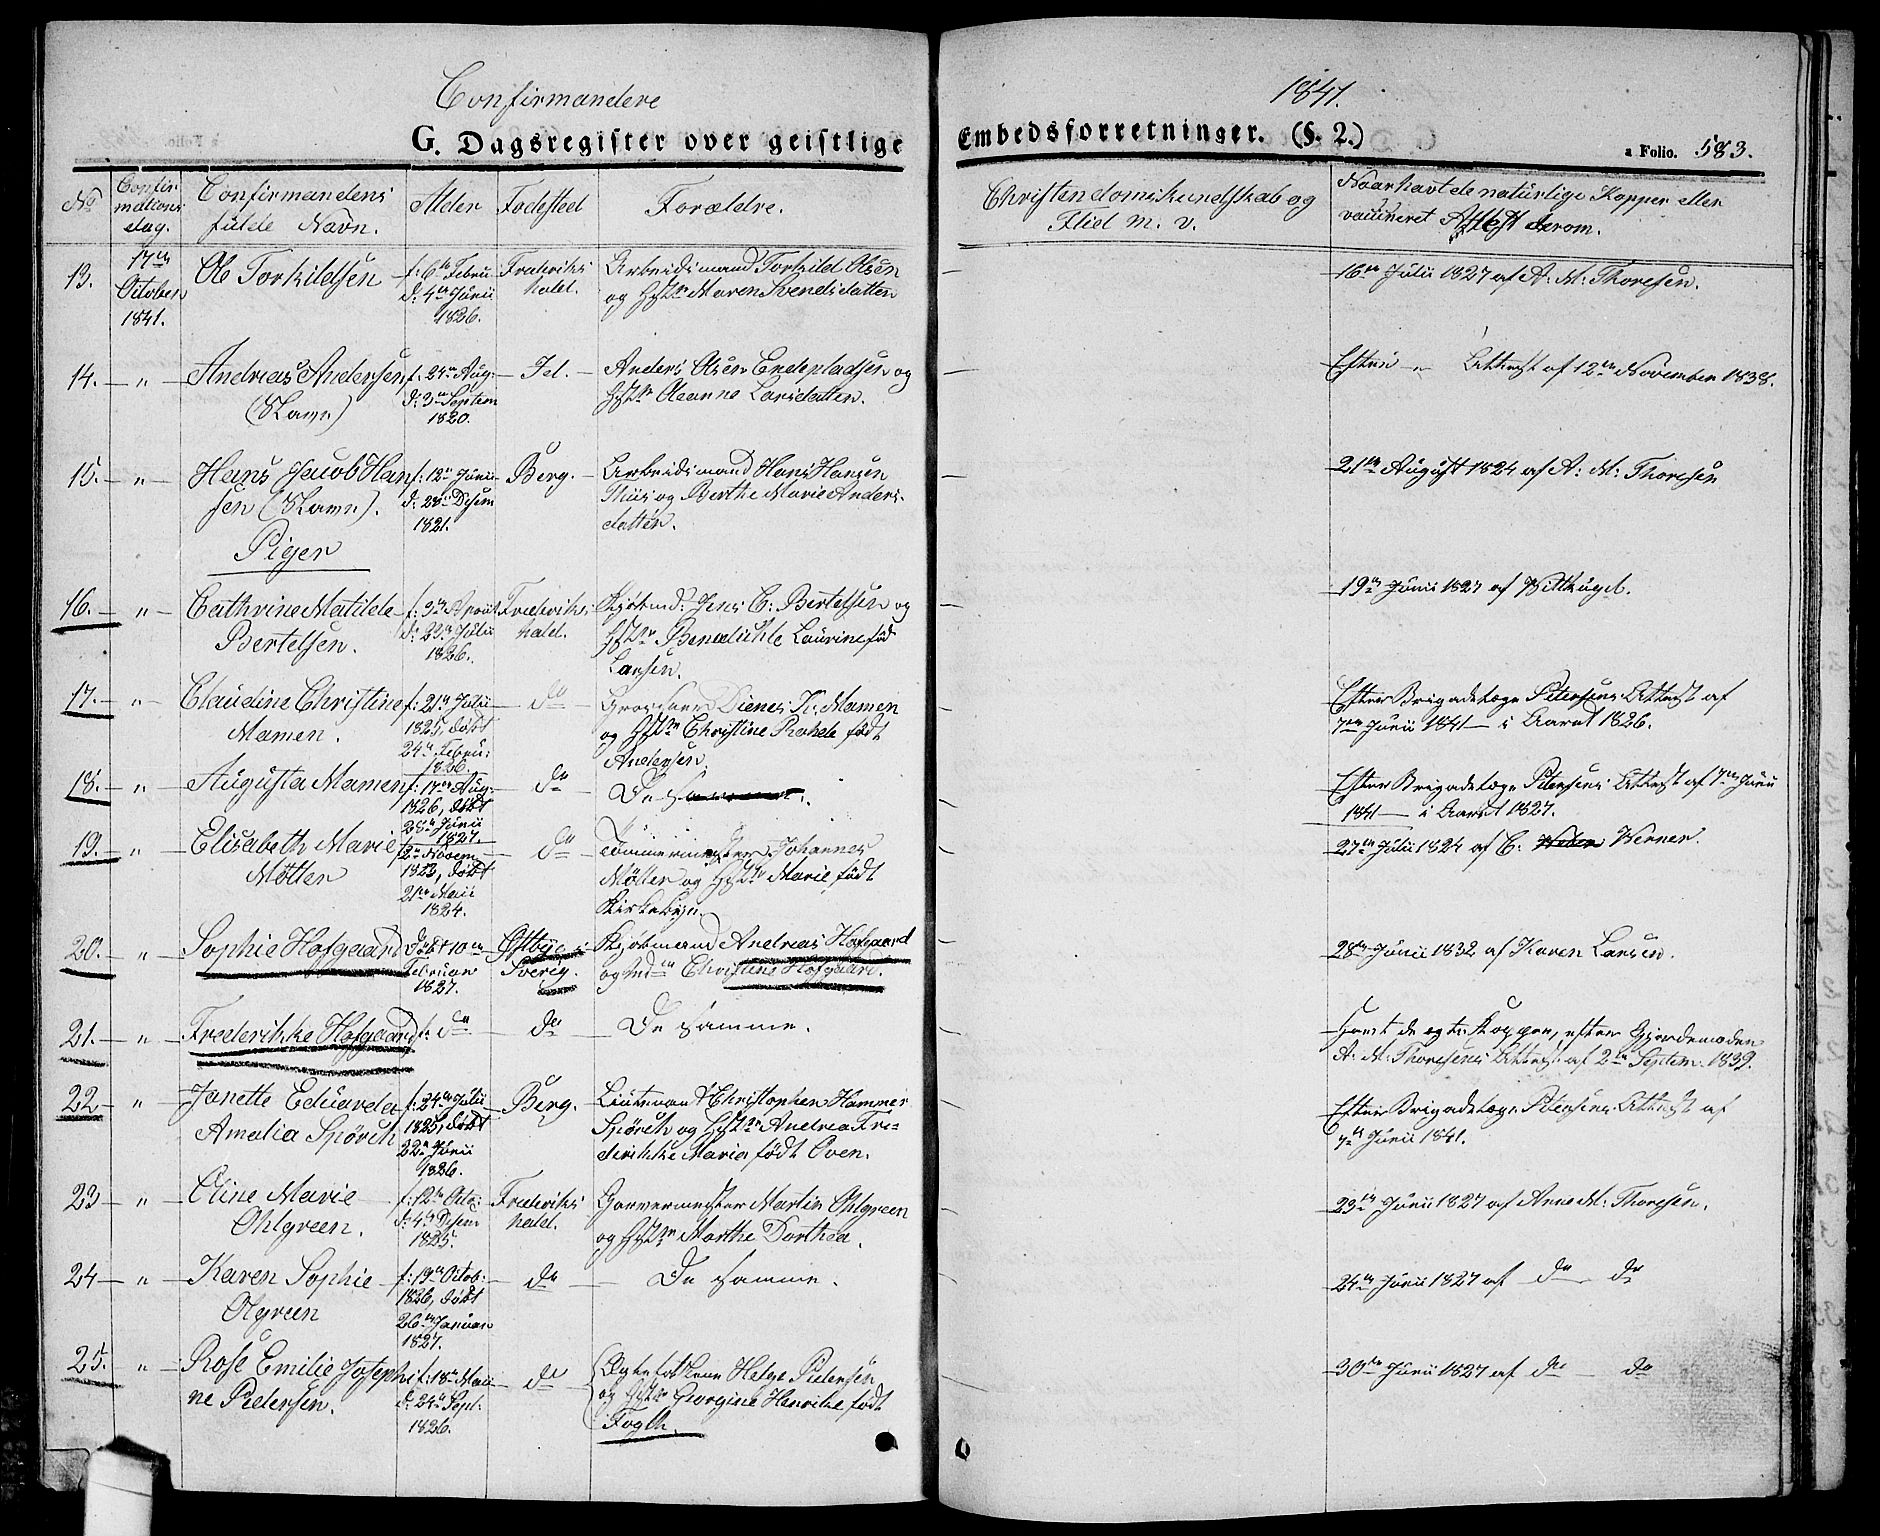 Confirmandere
1841.
G. Dagsregister over geistlige Embedsforretninger. (§. 2.)
a Folio. 583.
No
Confir-
mations
dag.
Confirmandens
fulde Navn.
Alder
Fødested
Forældre.
Christendomskundskab og
Flid m. v.
Naar havt de naturlige Kopper eller
vaccineret Attest derom.
13.
17de
October
1841.
Ole Torkildsen
f. 6te Febru
d. 4de Junii
1826.
Frederiks
hald.
Arbeidsmand Torkild Olsen
og Hstr Maren Svendsdatter
16de Julii 1827 af A: M: Thoresen.
14. — " —
Andreas Andersen
(Slave)
f. 24de Aug:
d: 3die Septem
1820.
Id.
Anders Olsen Endepladsen og
Hstr Oleanne Larsdatter.
Efter " Attest af 12te November 1838.
15. — " —
Hans Jacob Han
sen (Slave).
f: 12te Junii
d: 28de Desem
1821.
Berg.
Arbeidsmand Hans Hansen
Thiis og Berthe Marie Anders-
datter.
21de August 1824 af A: M: Thoresen
Piger
16. — " —
Cathrine Matilde
Bertelsen.
f: 3die April
d: 22de Julii
1826.
Frederiks-
hald.
Kjøbmd: Jens C: Bertelsen og
Hstr Benedichte Laurine fød
Larsen.
19de Junii 1827 af Wittkugel.
17. — " —
Claudine Christine
Mamen.
f: 21de Julii
1825, døbt
24de Febru:
1826.
do
Grosserer Dienes K: Mamen
og Hstr Christine Rahele født
Andersen.
Efter Brigadelæge Petersens Attest af
7de Junii 1841 — i Aaret 1826.
18. — " —
Augusta Mamen
f: 17de Aug:
1826, døbt
28de Junii
1827.
do
De samme.
Efter Brigadelæge Petersens Attest af 7de Junii
1841 — i Aaret 1827.
19. — " —
Elisabeth Marie
Møller
f 2den Novem
1823, døbt
21de Maii
1824.
do
Tømmermester Johannes
Møller og Hstr Marie født
Kirkebye.
27de Julii 1824 af C: Werner.
20. — " —
Sophie Hofgaard
Døbt 10de
Februar
1827.
Østbye i
Sverig.
Kjøbmand Andreas Hofgaard
og Christine Hofgaard.
28de Junii 1832 af Karen Larsen.
21. — " —
Frederikke Hofgaard
f: do
do
De samme.
Havt de egte Kopper, efter Gjordemoder
A: M: Thoresens Attest af 2den Septem. 1839.
22 — " —
Janette Edvarda
Amalia Spørch
f: 24de Julii
1825, døbt
22de Junii
1826.
Berg.
Lieutenant Christopher Hammer
Spørch og Hstr Andrea Fre-
derikke Maria født Oven.
Efter Brigadelæge Petersens Attest af
7de Junii 1841.
23 — " —
Oline Marie
Ohlgreen.
f: 12te Octo:
d: 4de Desem
1825.
Frederiks
hald.
Garvermester Martin Ohlgreen
og Hstr Marthe Dorthea.
23de Junii 1827 af Anne M: Thoresen.
24 — " —
Karen Sophie
Olgreen
f: 19de Octob:
1826, døbt
26de Januar
1827.
do
De samme.
24de Junii 1827 af do do
25. — " —
Rose Emilie Joseph
ne Pedersen.
f: 18de Maii
d: 24de Sept:
1826.
do
Ægtefolkene Helge Pedersen
og Hstr Georgine Henrike født
Fogth.
30de Junii 1827 af do — do